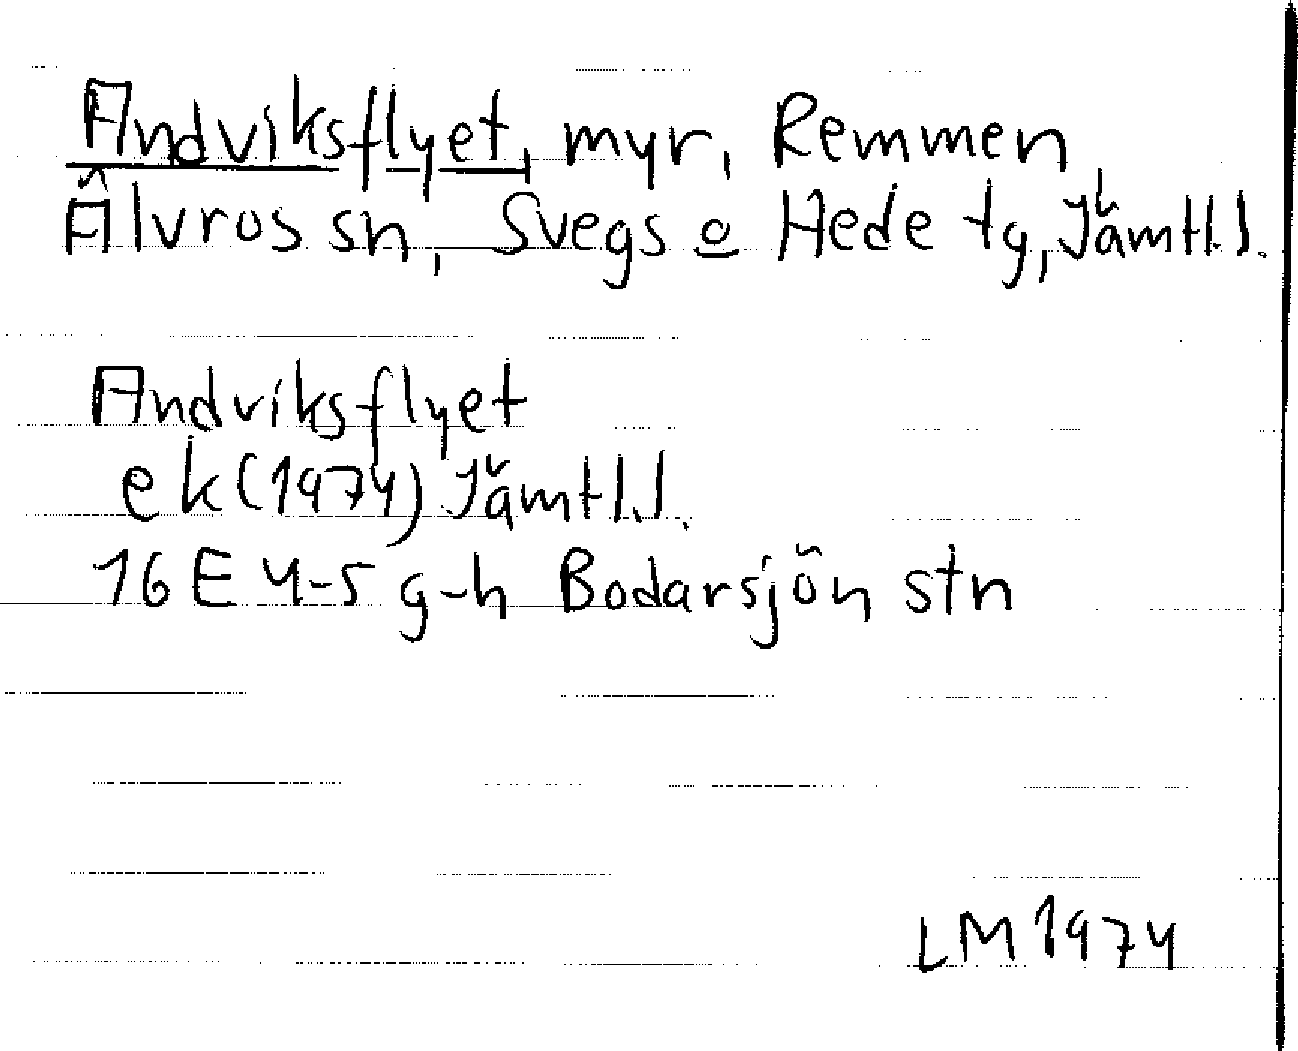 Andviksflyet, myr, Remmen
Älvros sn, Svegs o Hede tg, Jämtl.l.
Andviksflyet
ek(1974) Jämtl.l.
16E 4-5 g-h Bodarsjön stn
LM 1974